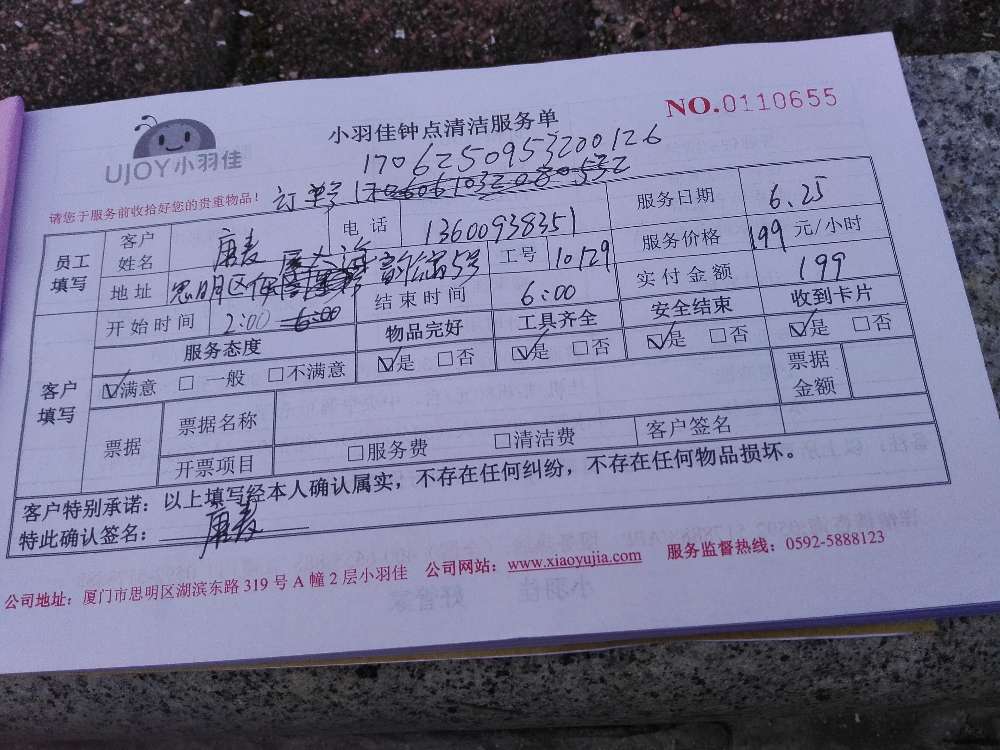 NO.0110655
UJOY小羽佳
小羽佳钟点清洁服务单
1706250953200126
请您于服务前收拾好您的贵重物品！ 订单号
员工填写 客户姓名 唐麦 电话 13600938351 服务日期 6.25
地址 思明区 5号 工号 10129 服务价格 199 元/小时
开始时间 2:00 6:00 结束时间 6:00 实付金额 199
客户填写 服务态度 物品完好 工具齐全 安全结束 收到卡片
☑满意 □一般 □不满意 ☑是 □否 ☑是 □否 ☑是 □否 ☑是 □否
票据 票据名称 票据金额
开票项目 □服务费 □清洁费 客户签名
客户特别承诺：以上填写经本人确认属实，不存在任何纠纷，不存在任何物品损坏。
特此确认签名：唐麦
公司地址：厦门市思明区湖滨东路 319 号 A 幢 2 层小羽佳 公司网站：www.xiaoyujia.com 服务监督热线：0592-5888123